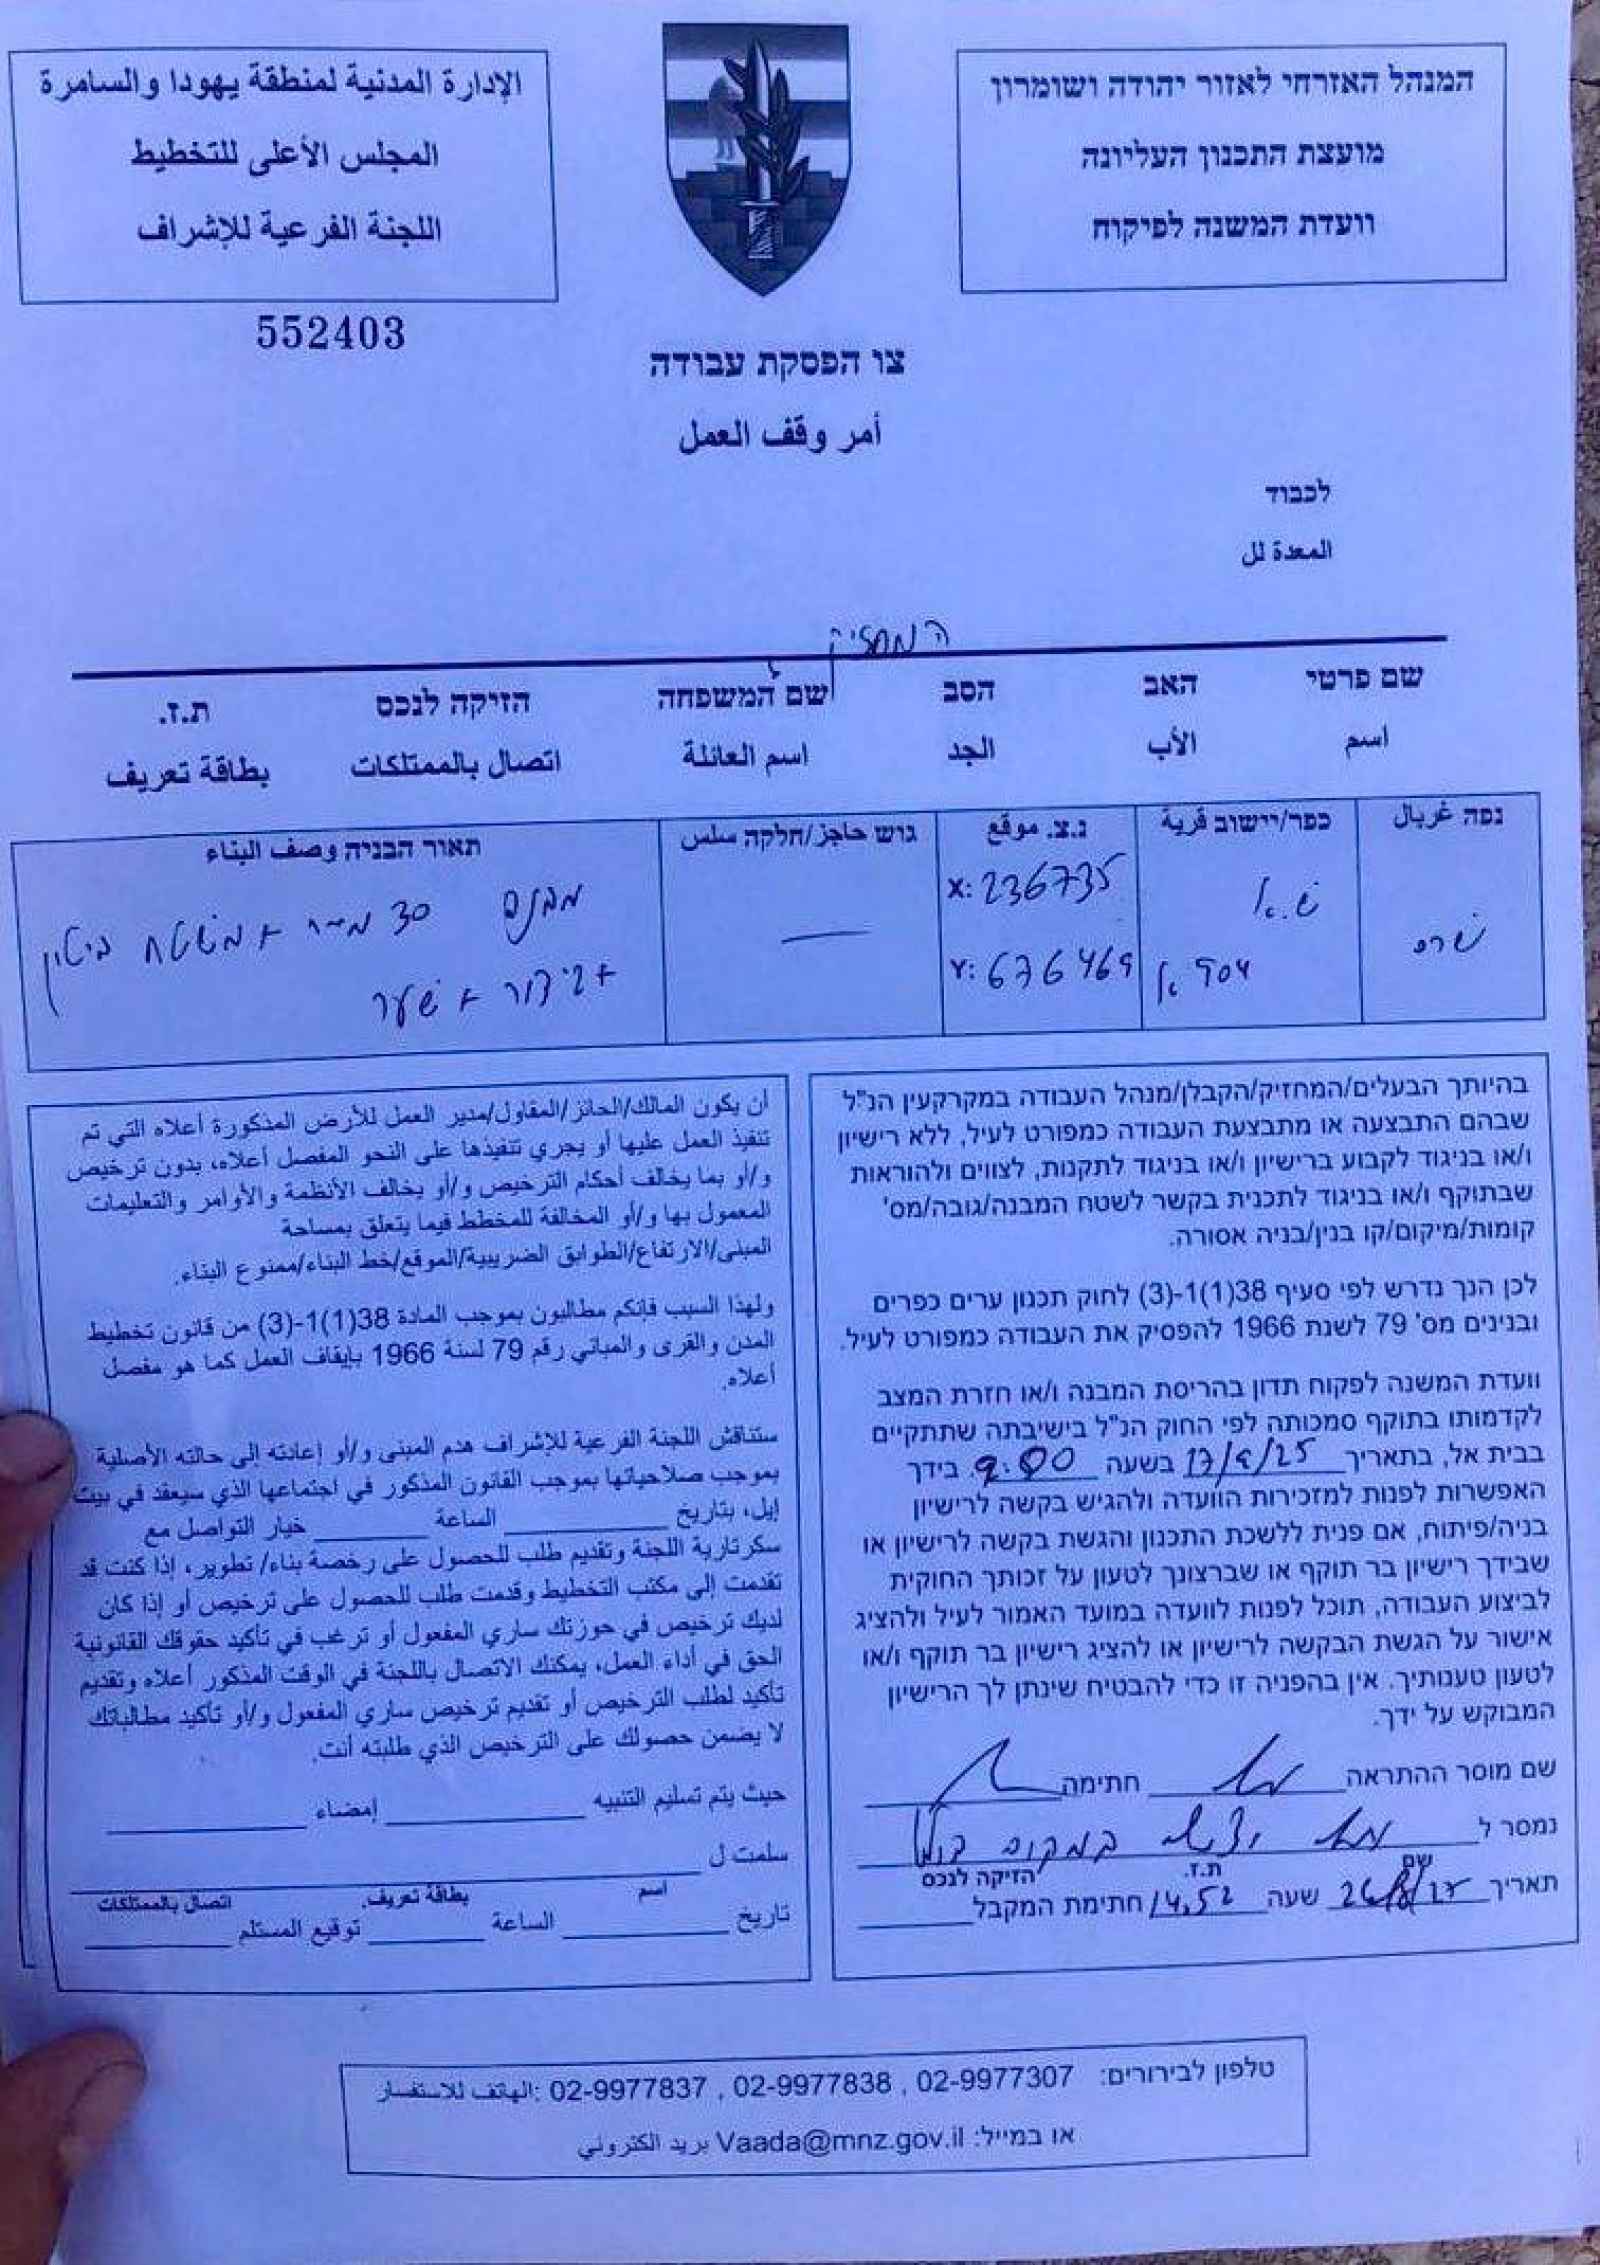 המנהל האזרחי לאזור יהודה ושומרון
מועצת התכנון העליונה
וועדת המשנה לפיקוח
الإدارة المدنية لمنطقة يهودا والسامرة
المجلس الأعلى للتخطيط
اللجنة الفرعية للإشراف
552403
צו הפסקת עבודה
أمر وقف العمل
לכבוד
المعدة لل
המחזיק
שם פרטי האב הסב שם המשפחה הזיקה לנכס ת.ז.
اسم الأب الجد اسم العائلة اتصال بالممتلكات بطاقة تعريف
נפה غربال כפר/יישוב قرية נ.צ. موقع גוש حاجز/חלקה سلس תאור הבניה وصف البناء
X: 236735
Y: 676469
מבנה 30 מ"ר + משטח ביטון
+ גידור + שער
בהיותך הבעלים/המחזיק/הקבלן/מנהל העבודה במקרקעין הנ"ל
שבהם התבצעה או מתבצעת העבודה כמפורט לעיל, ללא רישיון
ו/או בניגוד לקבוע ברישיון ו/או בניגוד לתקנות, לצווים ולהוראות
שבתוקף ו/או בניגוד לתכנית בקשר לשטח המבנה/גובה/מס'
קומות/מיקום/קו בנין/בניה אסורה.
לכן הנך נדרש לפי סעיף 38(1)1-(3) לחוק תכנון ערים כפרים
ובנינים מס' 79 לשנת 1966 להפסיק את העבודה כמפורט לעיל.
וועדת המשנה לפקוח תדון בהריסת המבנה ו/או חזרת המצב
לקדמותו בתוקף סמכותה לפי החוק הנ"ל בישיבתה שתתקיים
בבית אל, בתאריך 17/9/25 בשעה 9:00. בידך
האפשרות לפנות למזכירות הוועדה ולהגיש בקשה לרישיון
בניה/פיתוח, אם פנית ללשכת התכנון והגשת בקשה לרישיון או
שבידך רישיון בר תוקף או שברצונך לטעון על זכותך החוקית
לביצוע העבודה, תוכל לפנות לוועדה במועד האמור לעיל ולהציג
אישור על הגשת הבקשה לרישיון או להציג רישיון בר תוקף ו/או
לטעון טענותיך. אין בהפניה זו כדי להבטיח שינתן לך הרישיון
המבוקש על ידך.
שם מוסר ההתראה חתימה
נמסר ל במקום
שם ת.ז. הזיקה לנכס
תאריך שעה 14,52 חתימת המקבל
أن يكون المالك/الحائز/المقاول/مدير العمل للأرض المذكورة أعلاه التي تم
تنفيذ العمل عليها أو يجري تنفيذها على النحو المفصل أعلاه، بدون ترخيص
و/أو بما يخالف أحكام الترخيص و/أو يخالف الأنظمة والأوامر والتعليمات
المعمول بها و/أو المخالفة للمخطط فيما يتعلق بمساحة
المبنى/الارتفاع/الطوابق الضريبية/الموقع/خط البناء/ممنوع البناء.
ولهذا السبب فإنكم مطالبون بموجب المادة 38(1)1-(3) من قانون تخطيط
المدن والقرى والمباني رقم 79 لسنة 1966 بإيقاف العمل كما هو مفصل
أعلاه.
ستناقش اللجنة الفرعية للإشراف هدم المبنى و/أو إعادته إلى حالته الأصلية
بموجب صلاحياتها بموجب القانون المذكور في اجتماعها الذي سيعقد في بيت
إيل، بتاريخ الساعة خيار التواصل مع
سكرتارية اللجنة وتقديم طلب للحصول على رخصة بناء/ تطوير، إذا كنت قد
تقدمت إلى مكتب التخطيط وقدمت طلب للحصول على ترخيص أو إذا كان
لديك ترخيص في حوزتك ساري المفعول أو ترغب في تأكيد حقوقك القانونية
الحق في أداء العمل، يمكنك الاتصال باللجنة في الوقت المذكور أعلاه وتقديم
تأكيد لطلب الترخيص أو تقديم ترخيص ساري المفعول و/أو تأكيد مطالباتك
لا يضمن حصولك على الترخيص الذي طلبته أنت.
حيث يتم تسليم التنبيه إمضاء
سلمت ل
اسم بطاقة تعريف. اتصال بالممتلكات
تاريخ الساعة توقيع المستلم
טלפון לבירורים: 02-9977307 , 02-9977838 , 02-9977837 :الهاتف للاستفسار
או במייל: Vaada@mnz.gov.il بريد الكتروني